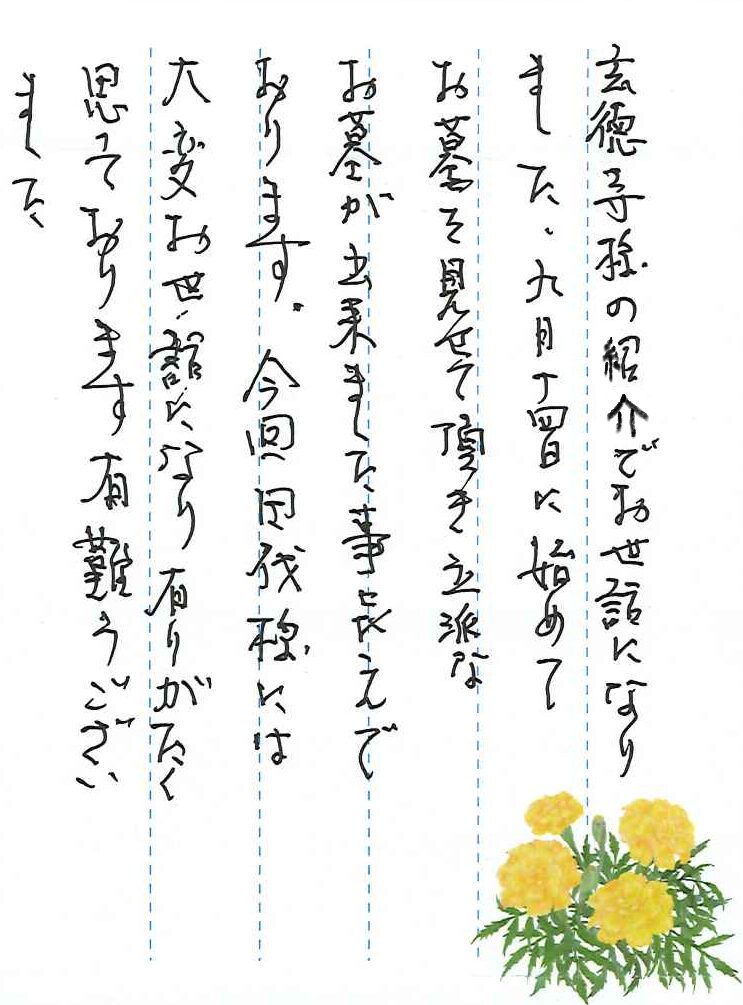 玄徳寺様の紹介でお世話になり
ました、九月十四日に始めて
お墓を見せて頂き立派な
お墓が出来ました事
おります。今回田代様には
大変お世話になり有りがたく
思っております有難うござい
ました